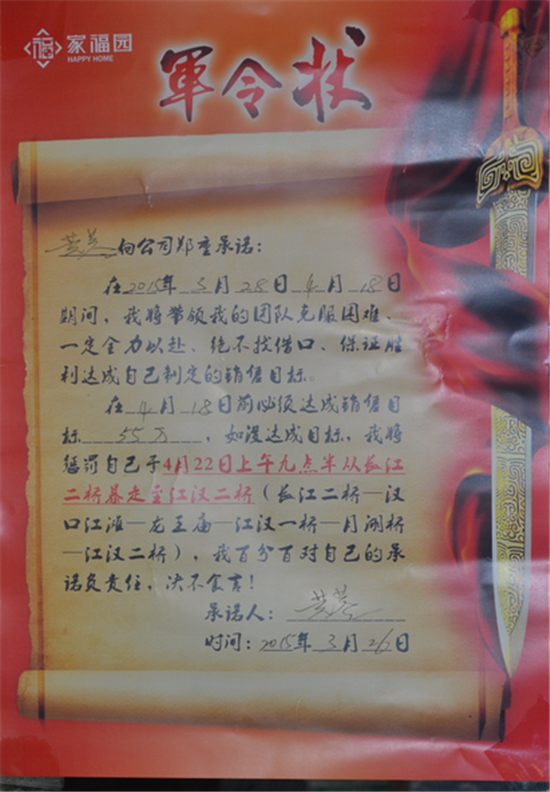 家福园
HAPPY HOME
軍令狀
向公司郑重承诺：
在2015年3月28日4月18日
期间，我将带领我的团队克服困难、
一定全力以赴、绝不找借口、保证胜
利达成自己制定的销售目标。
在4月18日前必须达成销售目
标55万，如没达成目标，我将
惩罚自己于4月22日上午九点半从长江
二桥暴走至江汉二桥（长江二桥—汉
口江滩—龙王庙—江汉一桥—月湖桥
—江汉二桥），我百分百对自己的承
诺负责任，决不食言！
承诺人：
时间：2015年3月26日